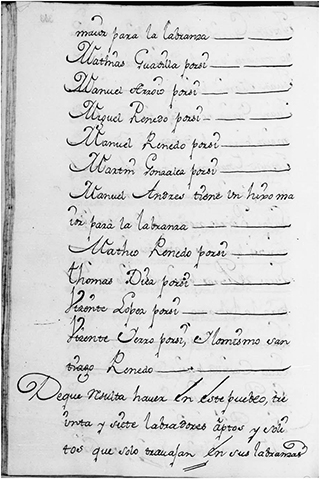 maior para la labranza
Mathias Guadilla porsi
Manuel Arroio porsi
Miguel Renedo porsi
Manuel Renedo porsi
Martin Gonzalez porsi
Manuel Andres tiene un hixo ma
ior para la labranza
Matheo Renedo porsi
Thomas Diez porsi
Vizente Lopez porsi
Vizente Serro porsi, Ylomismo san
tiago Renedo
Deque resulta haver en este pueblo, tre
inta y siete labradores aptos y
que solo travajan en sus labranzas